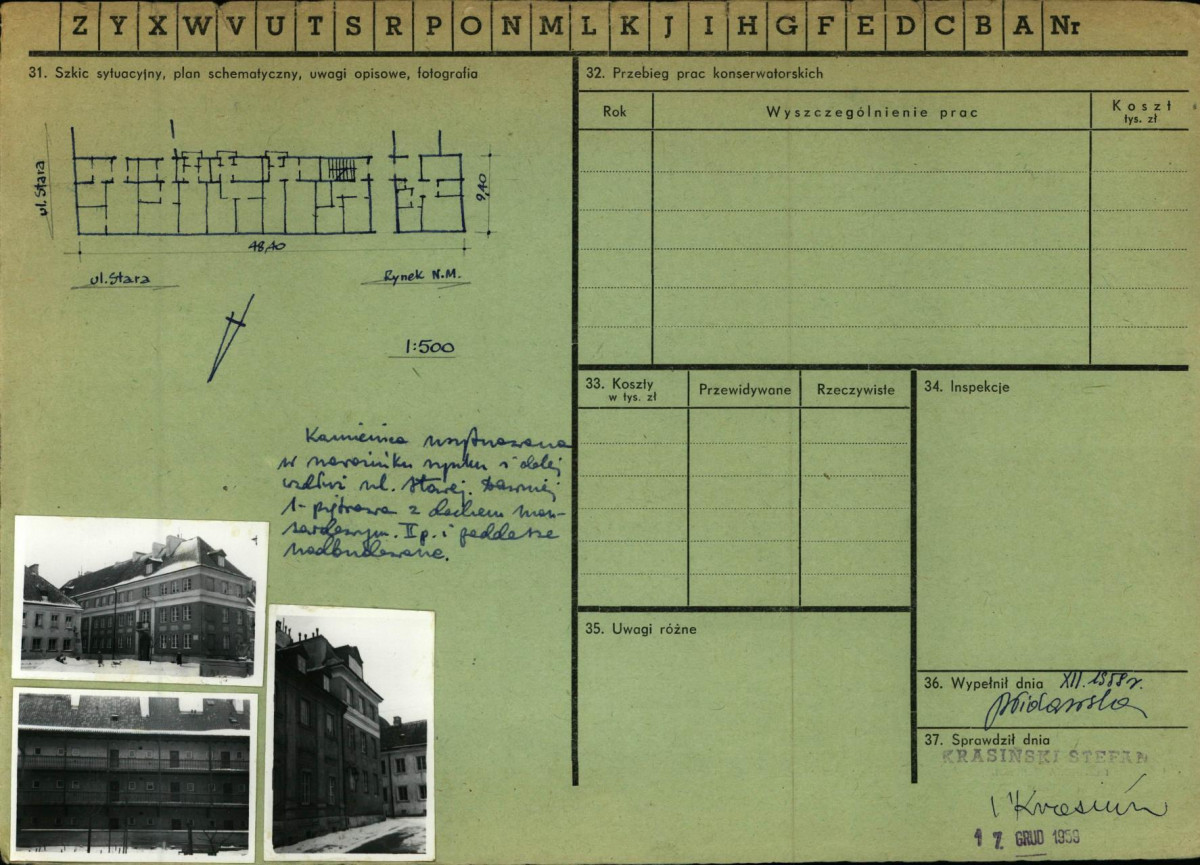 Z Y X W V U T S R P O N M L K J I H G F E D C B A Nr
31. Szkic sytuacyjny, plan schematyczny, uwagi opisowe, fotografia
ul. Stara
9,40
48,40
ul. Stara
Rynek N.M.
1:500
Kamienica usytuowana
w narożniku rynku i dalej
wzdłuż ul. Starej. Dawniej
1-piętrowa z dachem man-
sardowym. II p. i poddasze
nadbudowane.
32. Przebieg prac konserwatorskich
Rok
Wyszczególnienie prac
Koszt
tys. zł
33. Koszty
w tys. zł
Przewidywane
Rzeczywiste
34. Inspekcje
35. Uwagi różne
36. Wypełnił dnia XII.1959 r.
37. Sprawdził dnia
KRASIŃSKI STEFAN
17. GRUD 1959